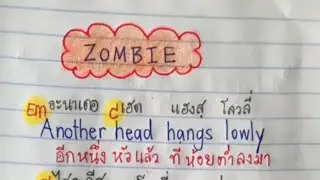 ZOMBIE
Em อะนาเดอ C เฮด แฮงสฺ โลวลี่
Another head hangs lowly
อีกหนึ่ง หัวแล้ว ที่ห้อยต่ำลงมา